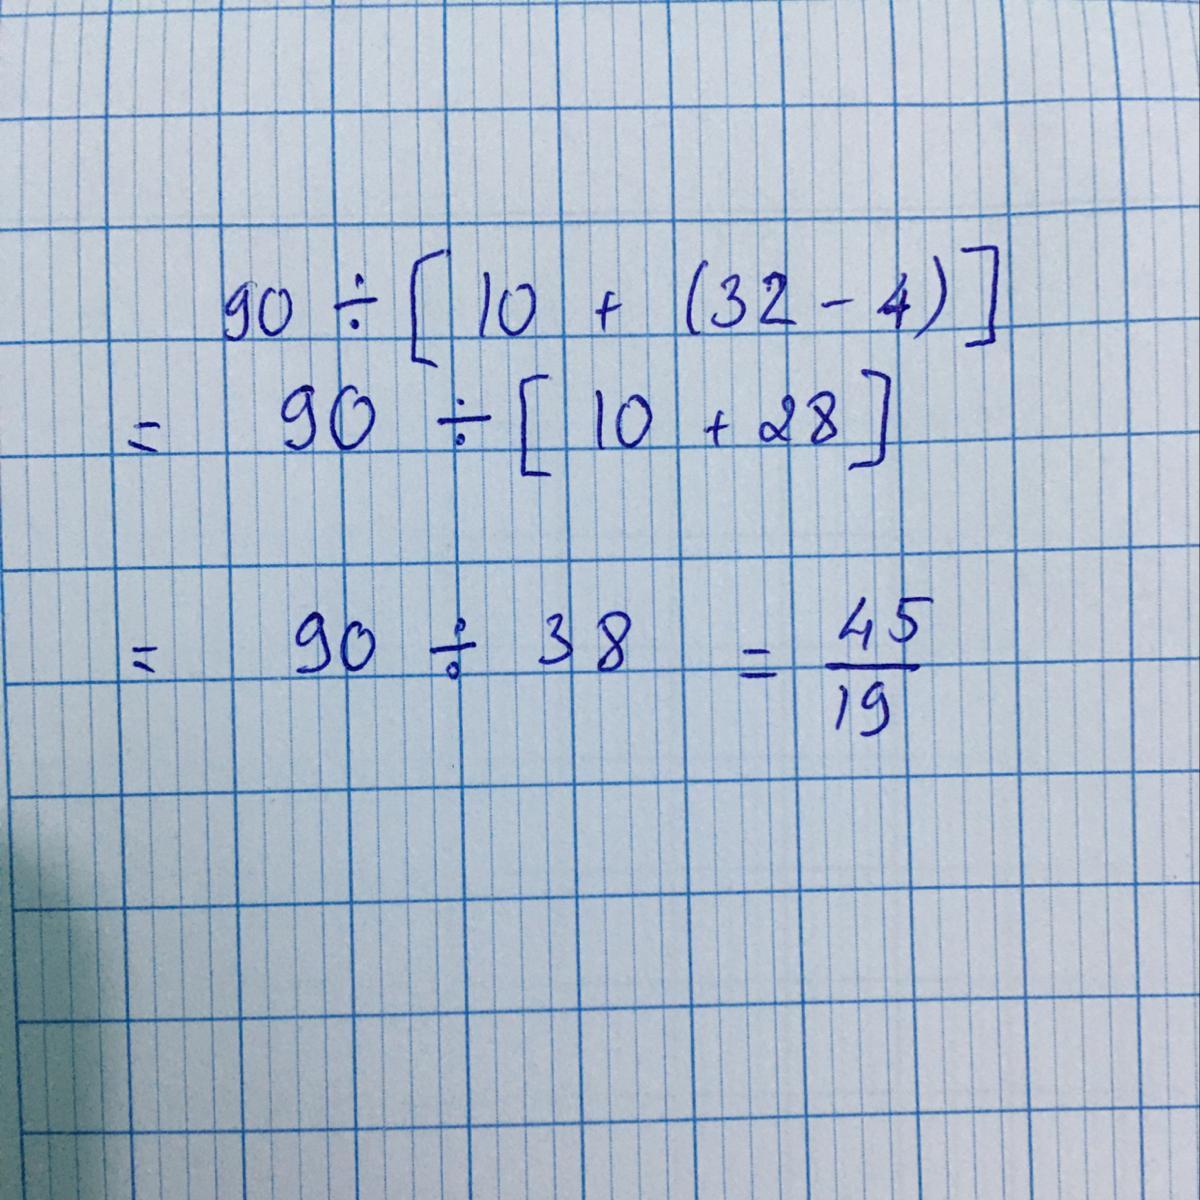 90 ÷ [ 10 + (32 - 4) ]
= 90 ÷ [ 10 + 28 ]
= 90 ÷ 38 = 45/19